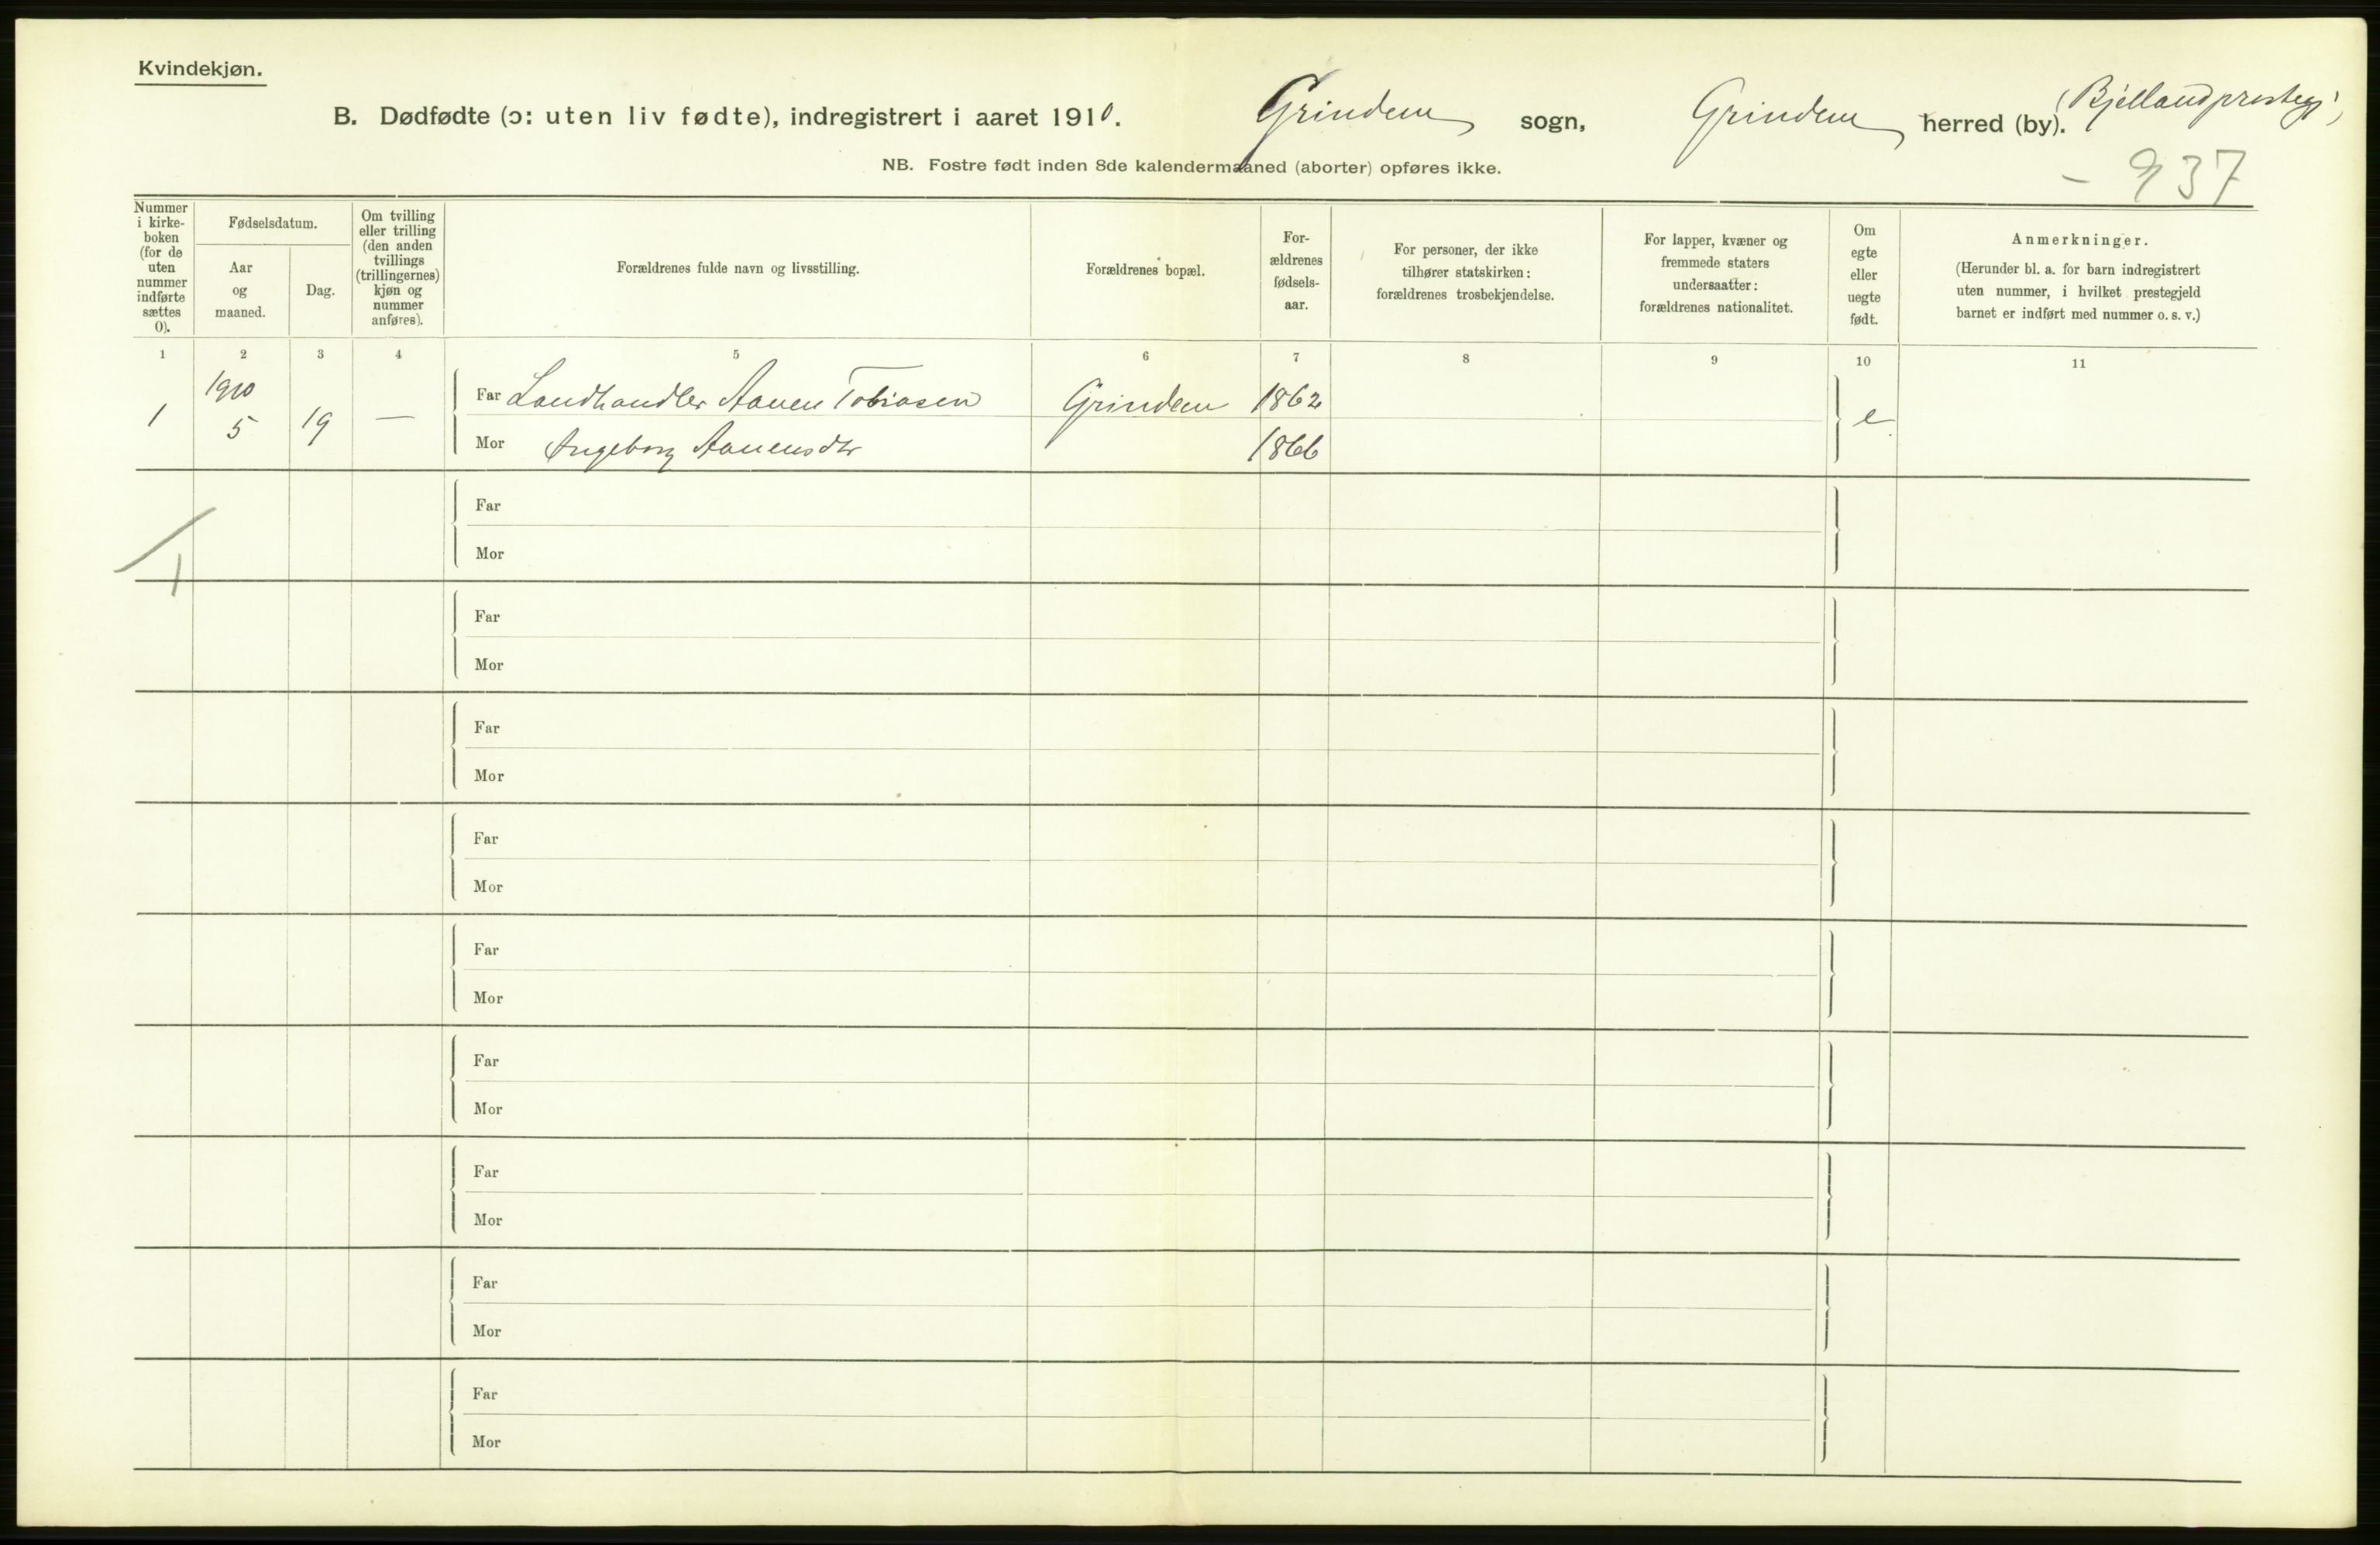 Kvindekjøn.
B. Dødfødte (ɔ: uten liv fødte), indregistrert i aaret 1910. Grindem sogn, Grindem herred (by). (Bjelland prestegj.)
NB. Fostre født inden 8de kalendermaaned (aborter) opføres ikke.
- 937
Nummer
i kirke-
boken
(for de
uten
nummer
indførte
sættes
0).
Fødselsdatum.
Aar
og
maaned.
Dag.
Om tvilling
eller trilling
(den anden
tvillings
(trillingernes)
kjøn og
nummer
anføres).
Forældrenes fulde navn og livsstilling.
Forældrenes bopæl.
For-
ældrenes
fødsels-
aar.
For personer, der ikke
tilhører statskirken:
forældrenes trosbekjendelse.
For lapper, kvæner og
fremmede staters
undersaatter:
forældrenes nationalitet.
Om
egte
eller
uegte
født.
Anmerkninger.
(Herunder bl. a. for barn indregistrert
uten nummer, i hvilket prestegjeld
barnet er indført med nummer o. s. v.)
1 2 3 4 5 6 7 8 9 10 11
1910
1 5 19 —
Far Landhandler Aanen Tobiasen Grindem 1862
e.
Mor Ingeborg Aanensdtr 1866
Far
Mor
1
Far
Mor
Far
Mor
Far
Mor
Far
Mor
Far
Mor
Far
Mor
Far
Mor
Far
Mor